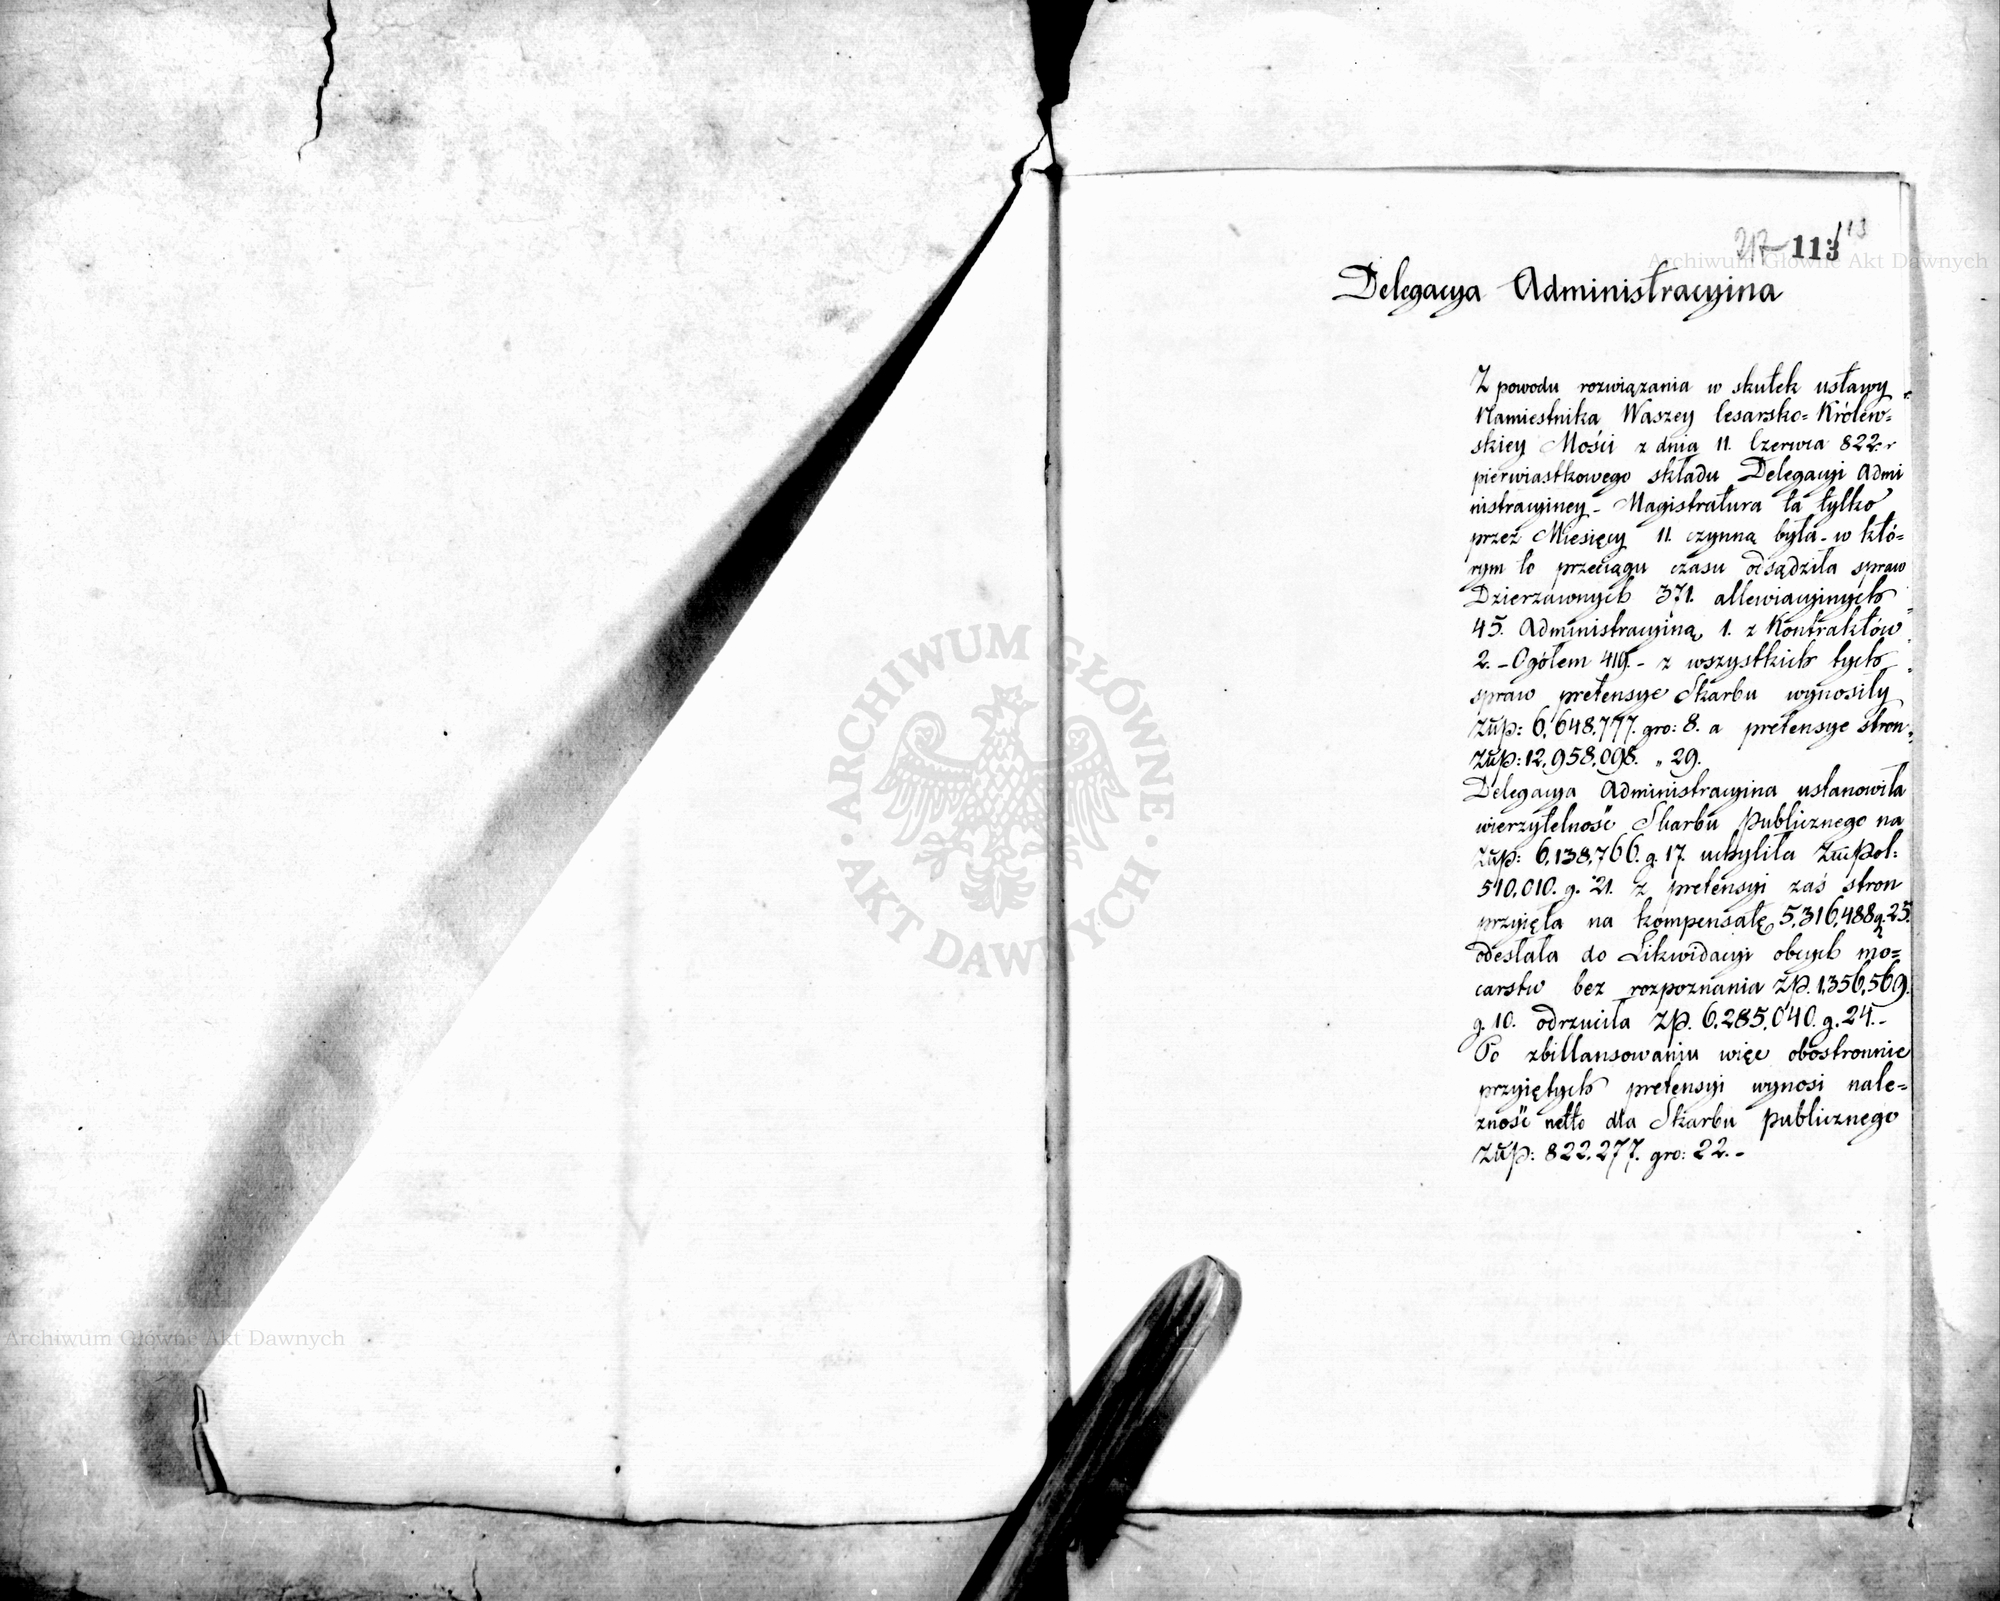 217 113 113
Delegacya Administracyina
Z powodu rozwiązania w skutek ustawy
Namiestnika Waszey Cesarsko=Królew=
skiey Mości z dnia 11. Czerwca 822. r
pierwiastkowego składu Delegacyi Admi
nistracyiney - Magistratura ta tylko
przez Miesięcy 11. czynną była - w któ=
rym to przeciągu czasu odsądziła spraw
Dzierzawnych 371. allewiacyinych
45. Administracyiną 1. z Kontraktów
2. - Ogółem 419. - z wszystkich tych
spraw pretensye Skarbu wynosiły
Złłp: 6,648,777. gro: 8. a pretensye stron
Złłp: 12,958,098. „ 29.
Delegacya Administracyina ustanowiła
wierzytelność Skarbu Publicznego na
Złłp: 6,138,766. g. 17. uchyliła Złł Pol:
510,010. g. 21. z pretensyi zaś stron
przyięła na kompensatę 5,316,488 g. 25.
odesłała do Likwidacyi obcych mo=
carstw bez rozpoznania Zp. 1,356,569.
g. 10. odrzuciła Zp. 6.285,040. g. 24. -
Po zbillansowaniu więc obostronnie
przyiętych pretensyi wynosi nale=
zność netto dla Skarbu Publicznego
Złłp: 822.277. gro: 22. -
ARCHIWUM GŁÓWNE AKT DAWNYCH
Archiwum Główne Akt Dawnych
Archiwum Główne Akt Dawnych